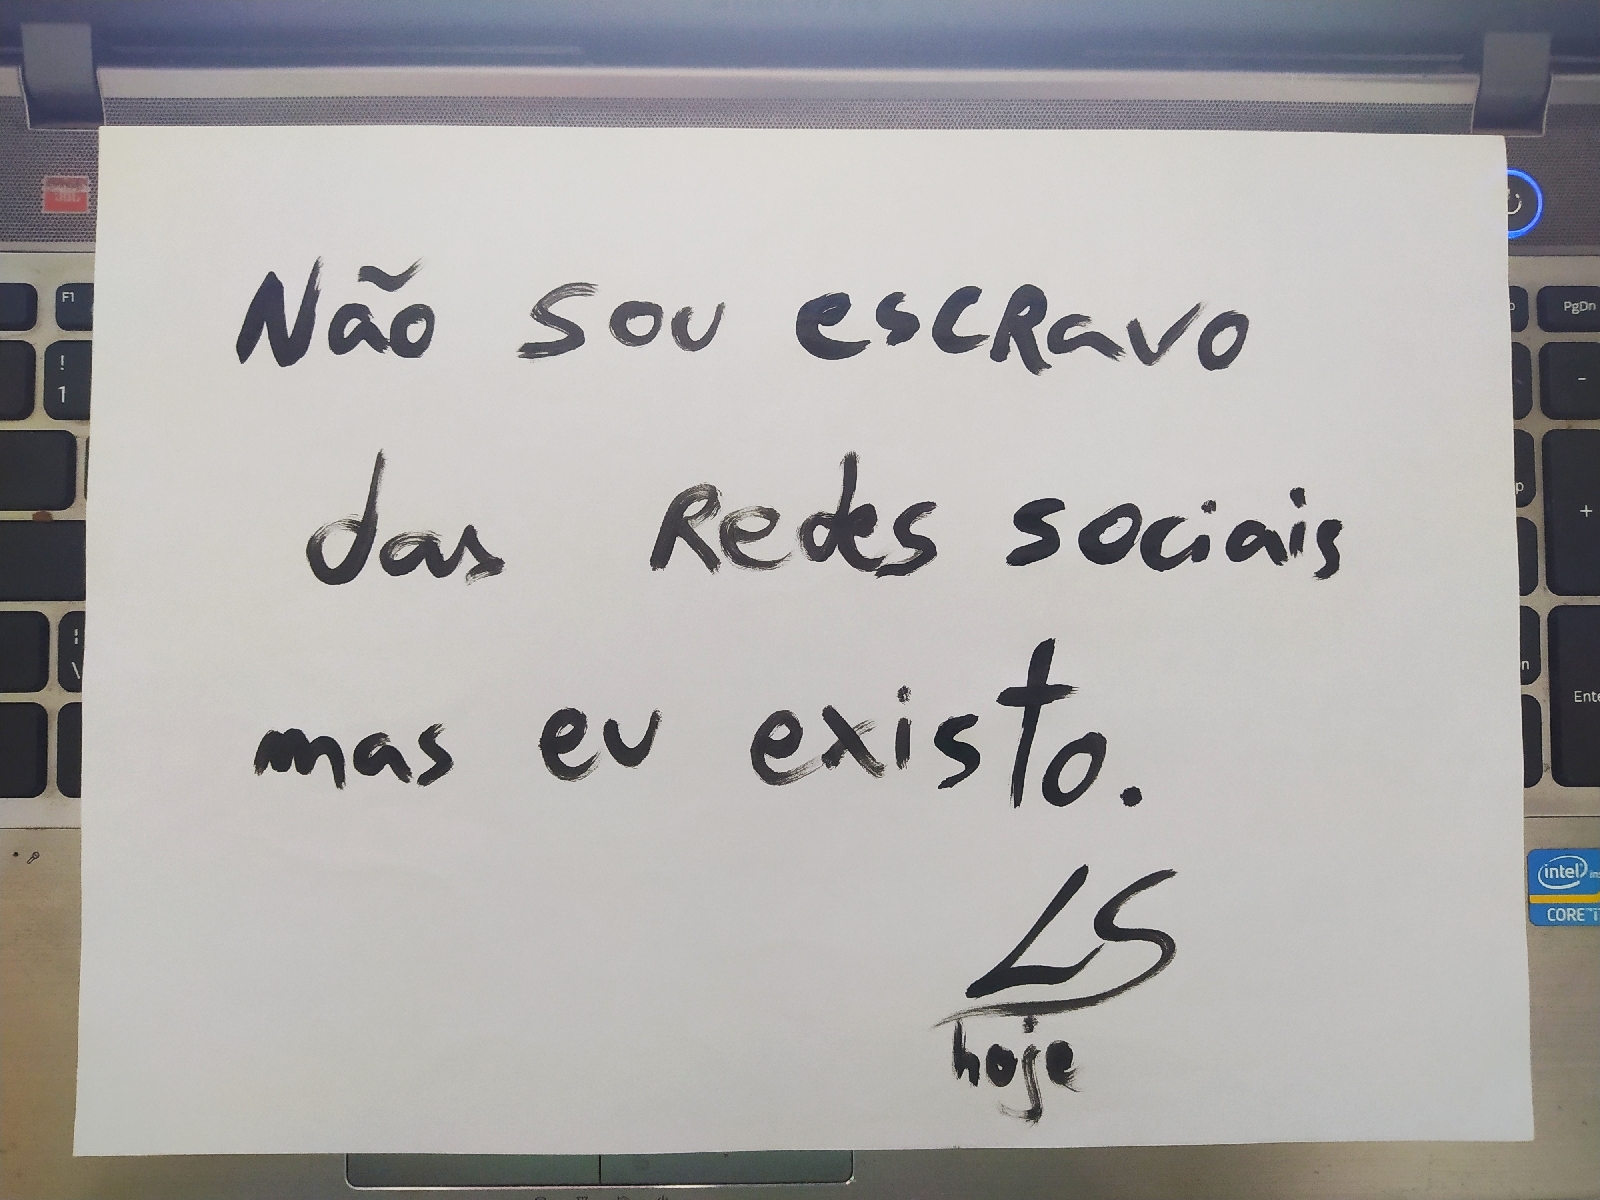 JBL
F1
PgDn
!
1
-
+
Não sou escravo
das Redes sociais
mas eu existo.
LS
hoje
\
Ente
intel
CORE i